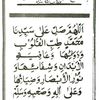 اللهم صل على سيدنا
محمد طب القلوب
ودوائها وعافية
الأبدان وشفائها و
نور الأبصار وضيائها
وعلى آله وصحبه وسلم